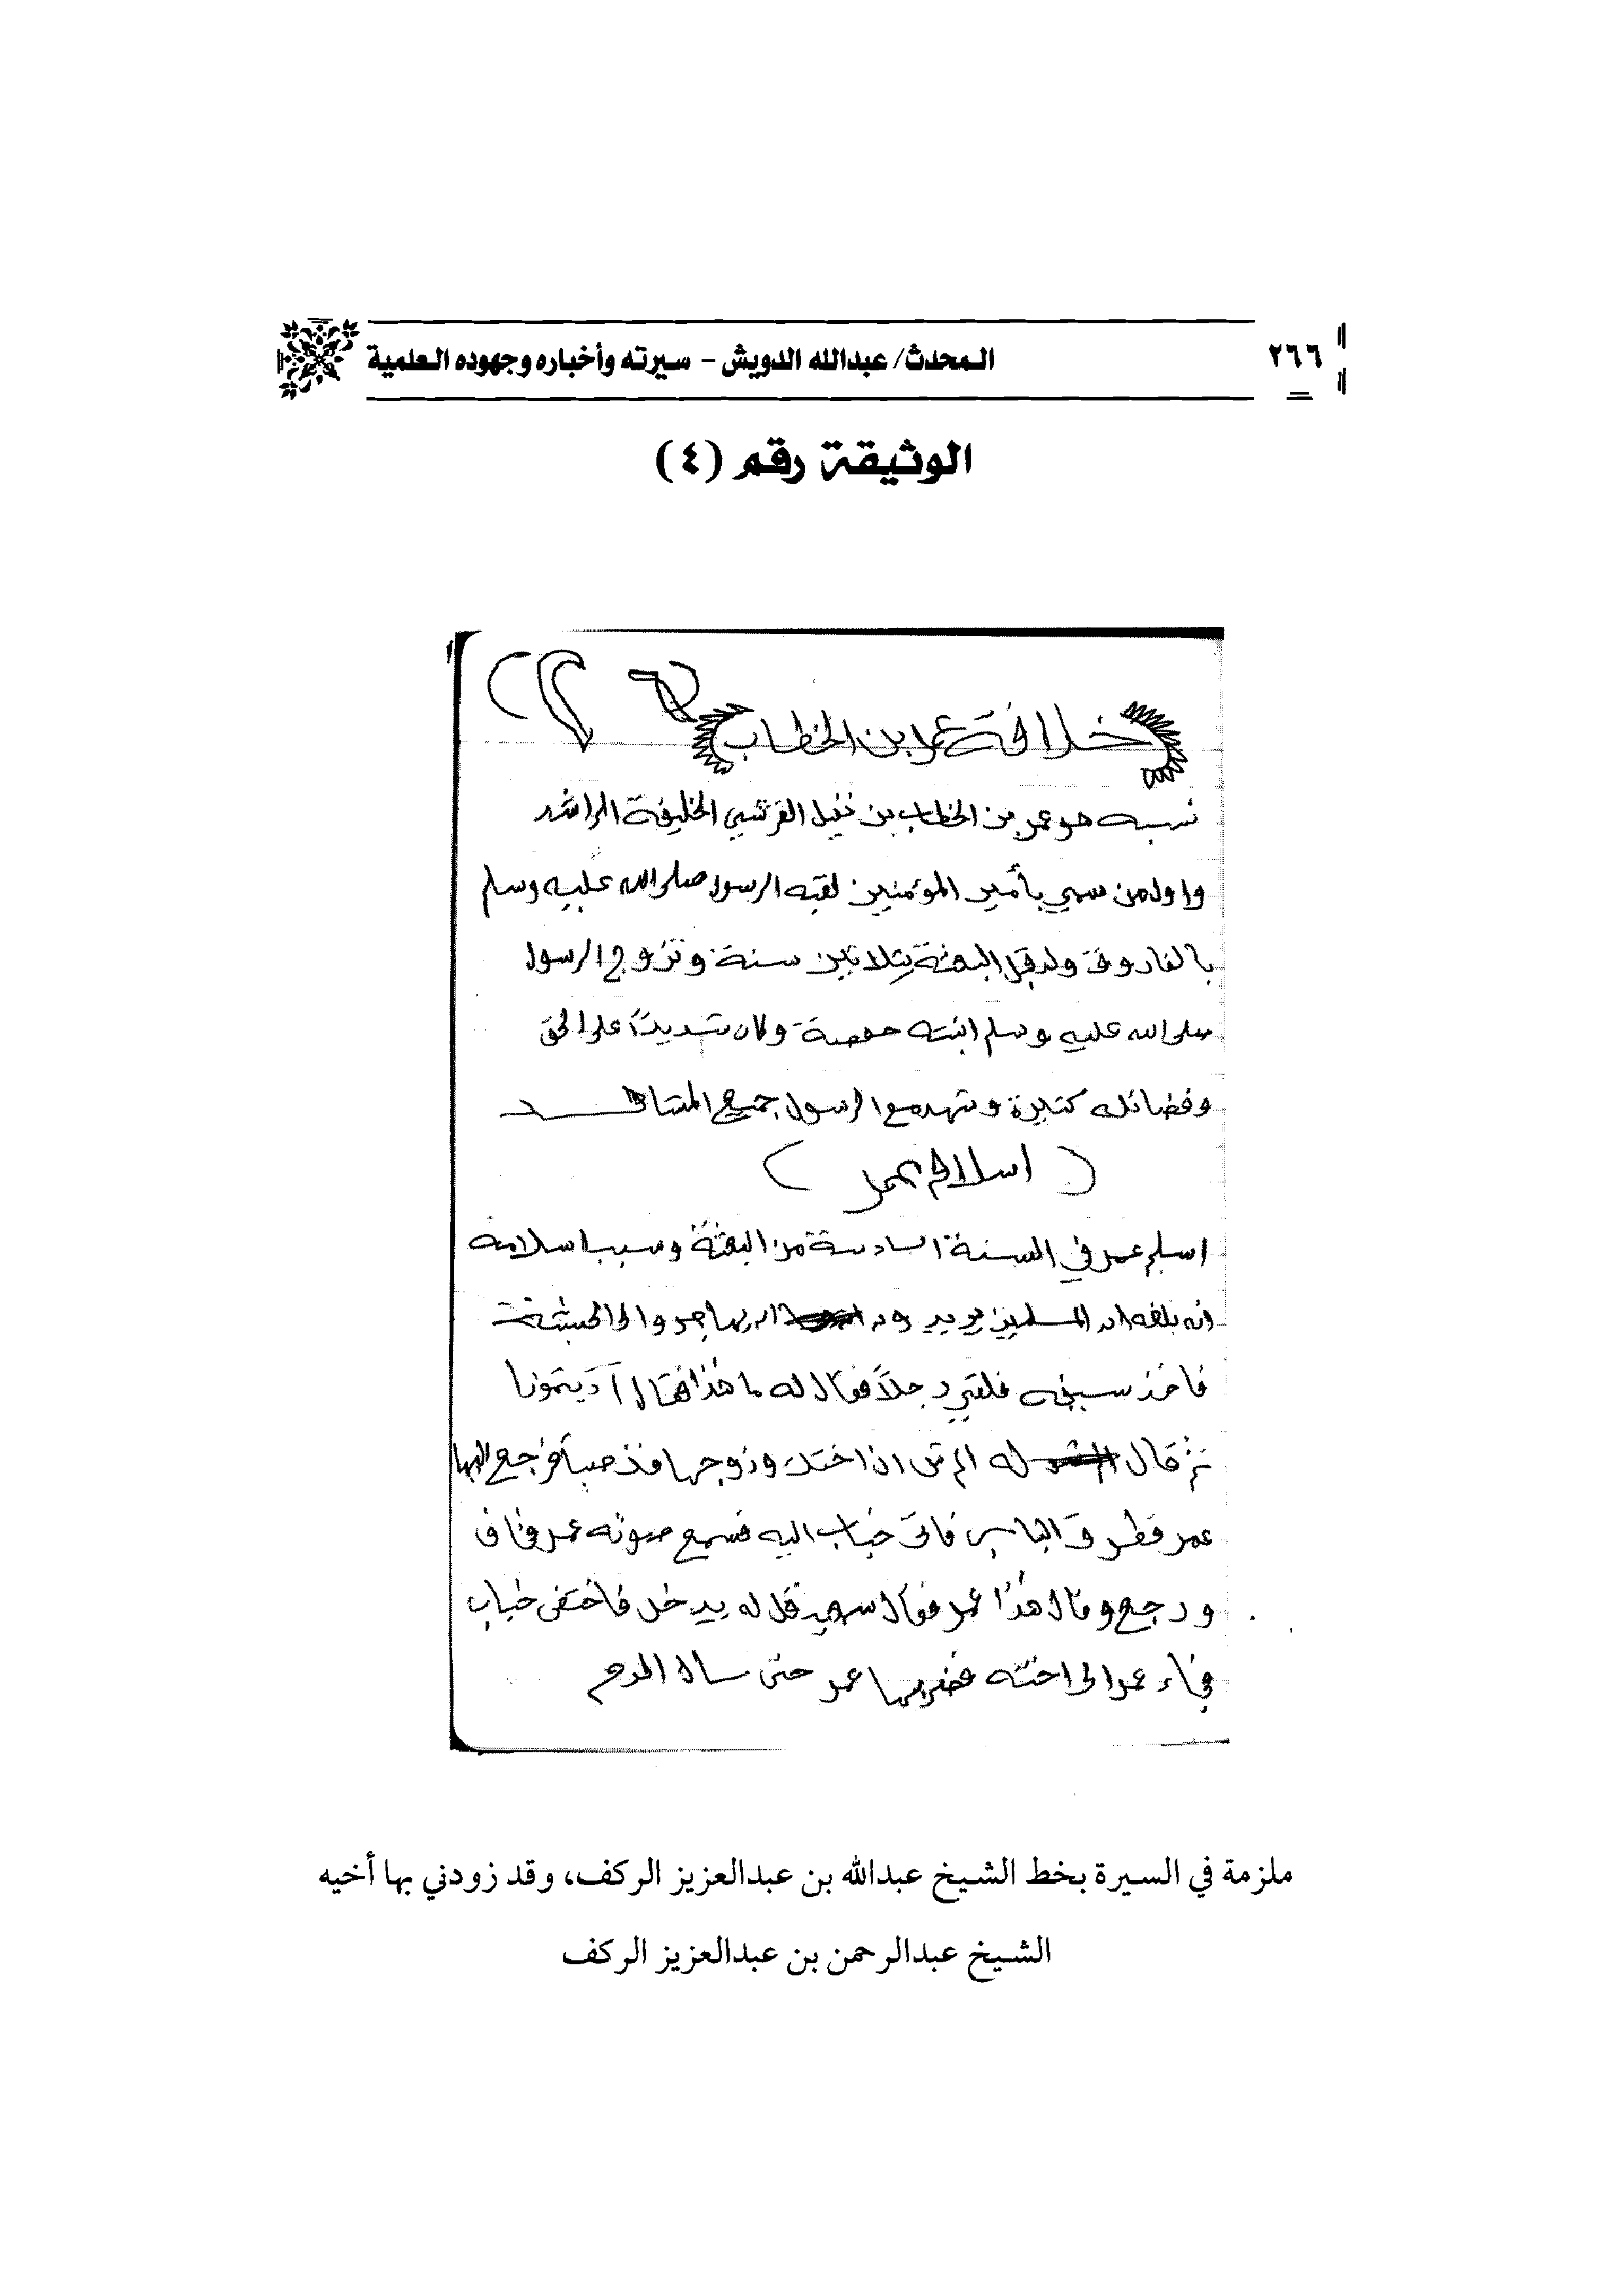 ٢٦٦
المحدث/ عبدالله الدويش – سيرته وأخباره وجهوده العلمية
الوثيقة رقم (٤)
(٢)
خلافة عمر ابن الخطاب
نسبه هو عمر بن الخطاب بن نفيل القرشي الخليفة الراشد
واول من سمي بأمير المؤمنين لقبه الرسول صلى الله عليه وسلم
بالفاروق ولد قبل البعثة بثلاثين سنة وتزوج الرسول
صلى الله عليه وسلم ابنته حفصة وكان شديدًا على الحق
وفضائله كثيرة وشهد مع الرسول جميع المشاهد
( اسلام عمر )
اسلم عمر في السنة السادسة من البعثة وسبب اسلامه
انه بلغه ان المسلمين يريدون ان يهاجروا الى الحبشة
فاخذ سيفه فلقي رجلاً فقال له ما هذا فقال
ثم قال له الم تر ان اختك وزوجها قد صبأ فرجع اليها
عمر فطرق الباب فاتى خباب اليه فسمع صوته عمر فخاف
ورجع وقال هذا عمر فقال سعيد قل له يدخل فاختفى خباب
فجاء عمر الى اخته فضربها عمر حتى سال الدم
ملزمة في السيرة بخط الشيخ عبدالله بن عبدالعزيز الركف، وقد زودني بها أخيه
الشيخ عبدالرحمن بن عبدالعزيز الركف